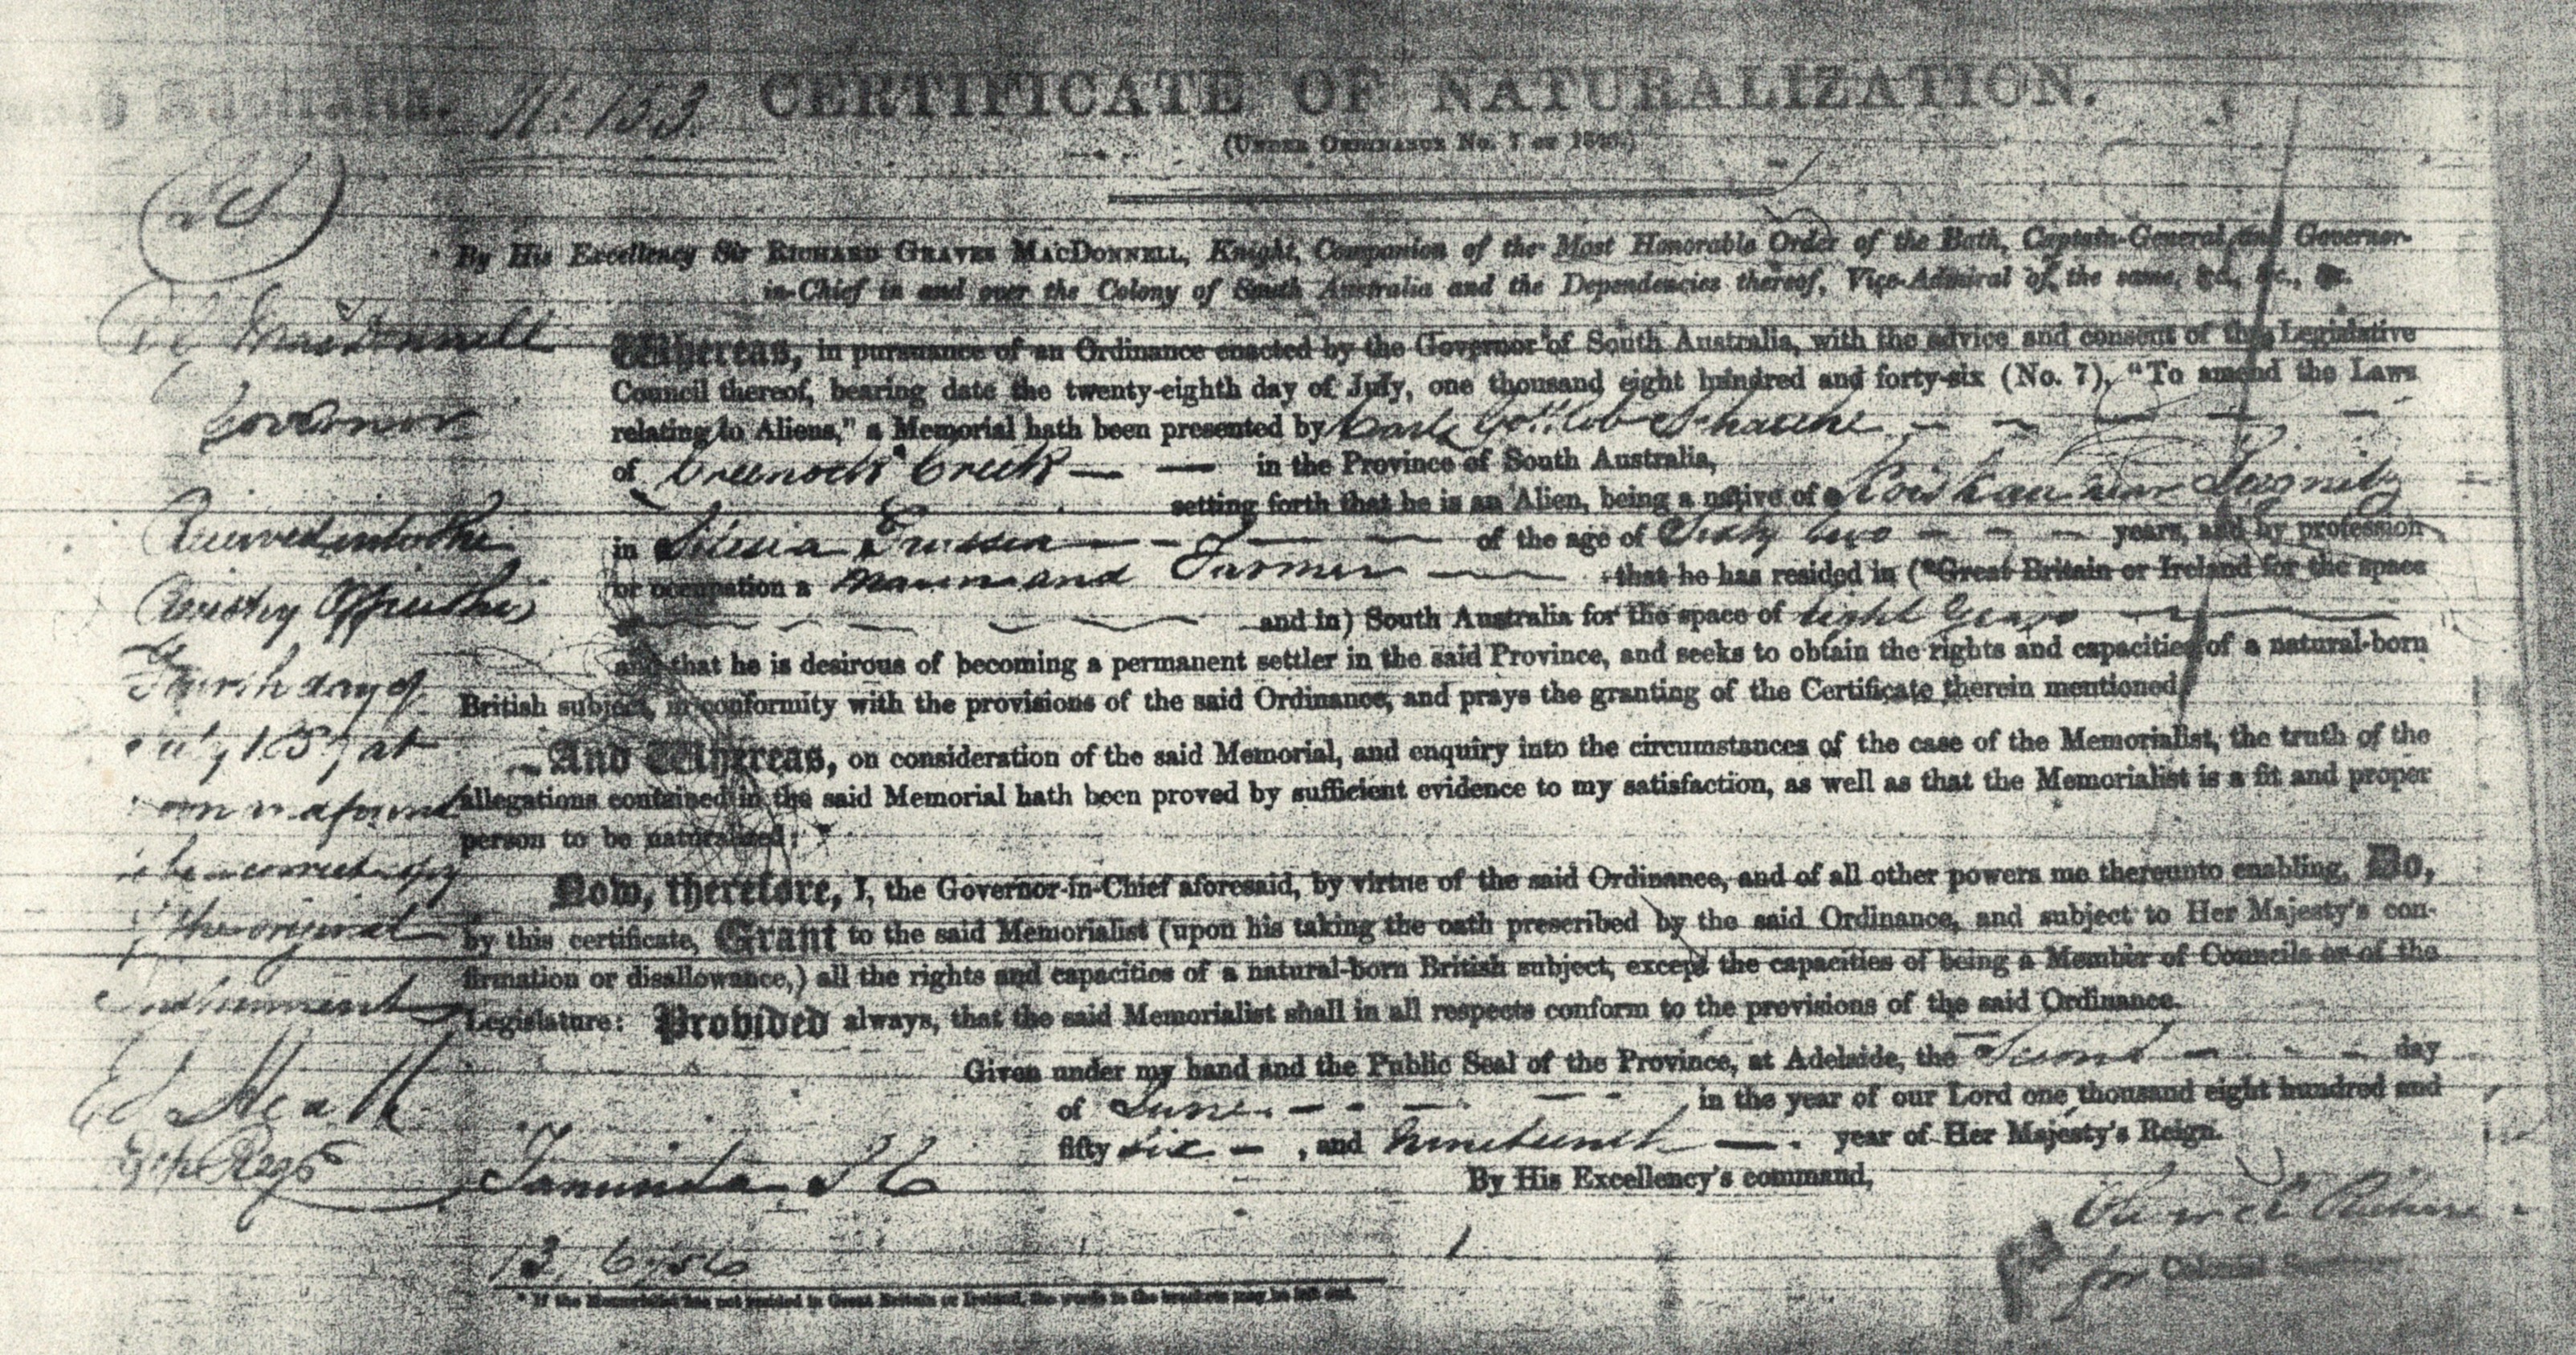 South Australia.
No. 153.
CERTIFICATE OF NATURALIZATION.
(UNDER ORDINANCE No. 7 OF 1846.)
By His Excellency Sir RICHARD GRAVES MACDONNELL, Knight, Companion of the Most Honorable Order of the Bath, Captain-General and Governor-
in-Chief in and over the Colony of South Australia and the Dependencies thereof, Vice-Admiral of the same, &c., &c., &c.
MacDonnell
Governor
Received into the
Registry Office this
Fourth day of
July 1857 at
noon and found
to be a correct copy
of the original
Instrument
Ed Heath
Dep Regr
Whereas, in pursuance of an Ordinance enacted by the Governor of South Australia, with the advice and consent of the Legislative
Council thereof, bearing date the twenty-eighth day of July, one thousand eight hundred and forty-six (No. 7), "To amend the Laws
relating to Aliens," a Memorial hath been presented by Carl Gottlob Schache
of Greenock Creek in the Province of South Australia,
setting forth that he is an Alien, being a native of near
in Silesia Prussia of the age of Sixty two years, and by profession
or occupation a and Farmer that he has resided in (*Great Britain or Ireland for the space
of and in) South Australia for the space of eight Years
and that he is desirous of becoming a permanent settler in the said Province, and seeks to obtain the rights and capacities of a natural-born
British subject, in conformity with the provisions of the said Ordinance, and prays the granting of the Certificate therein mentioned
And Whereas, on consideration of the said Memorial, and enquiry into the circumstances of the case of the Memorialist, the truth of the
allegations contained in the said Memorial hath been proved by sufficient evidence to my satisfaction, as well as that the Memorialist is a fit and proper
person to be naturalized:
Now, therefore, I, the Governor-in-Chief aforesaid, by virtue of the said Ordinance, and of all other powers me thereunto enabling, Do,
by this certificate, Grant to the said Memorialist (upon his taking the oath prescribed by the said Ordinance, and subject to Her Majesty's con-
firmation or disallowance,) all the rights and capacities of a natural-born British subject, except the capacities of being a Member of Councils or of the
Legislature: Provided always, that the said Memorialist shall in all respects conform to the provisions of the said Ordinance.
Given under my hand and the Public Seal of the Province, at Adelaide, the Second day
of June in the year of our Lord one thousand eight hundred and
fifty six, and Nineteenth year of Her Majesty's Reign.
By His Excellency's command,
for Colonial Secretary
Tanunda
13/6/56
* If the Memorialist has not resided in Great Britain or Ireland, the words in the brackets may be left out.